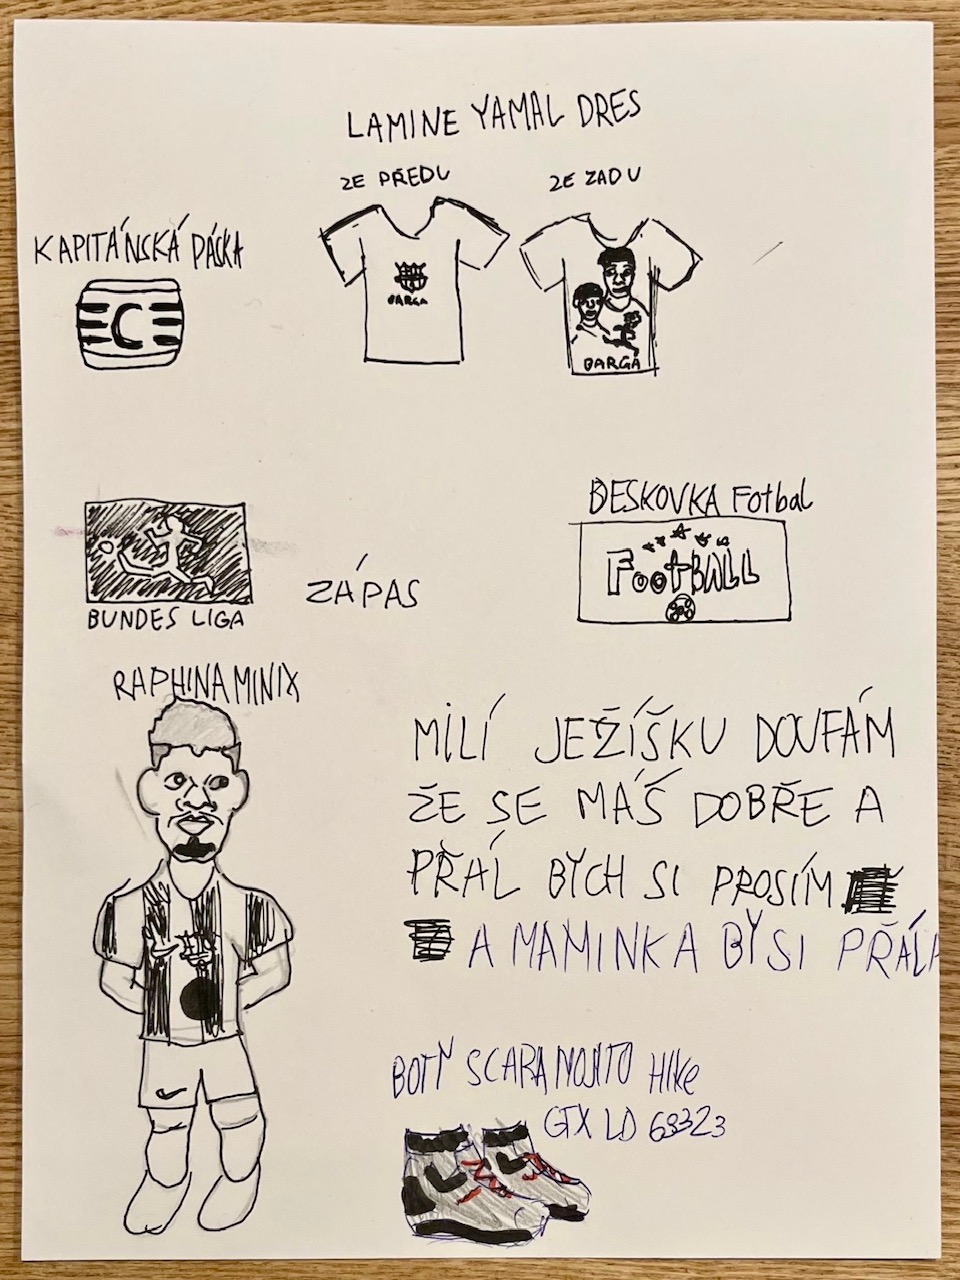 LAMINE YAMAL DRES
ZE PŘEDU
ZE ZADU
KAPITÁNSKÁ PÁSKA
C
BARCA
BARCA
BUNDES LIGA
ZÁPAS
DESKOVKA Fotbal
FootBALL
RAPHINA MINIX
MILÍ JEŽÍŠKU DOUFÁM
ŽE SE MÁŠ DOBŘE A
PŘÁL BYCH SI PROSÍM
A MAMINKA BY SI PŘÁLA
BOTY SCARPA MOJITO HIKE
GTX LD 63323